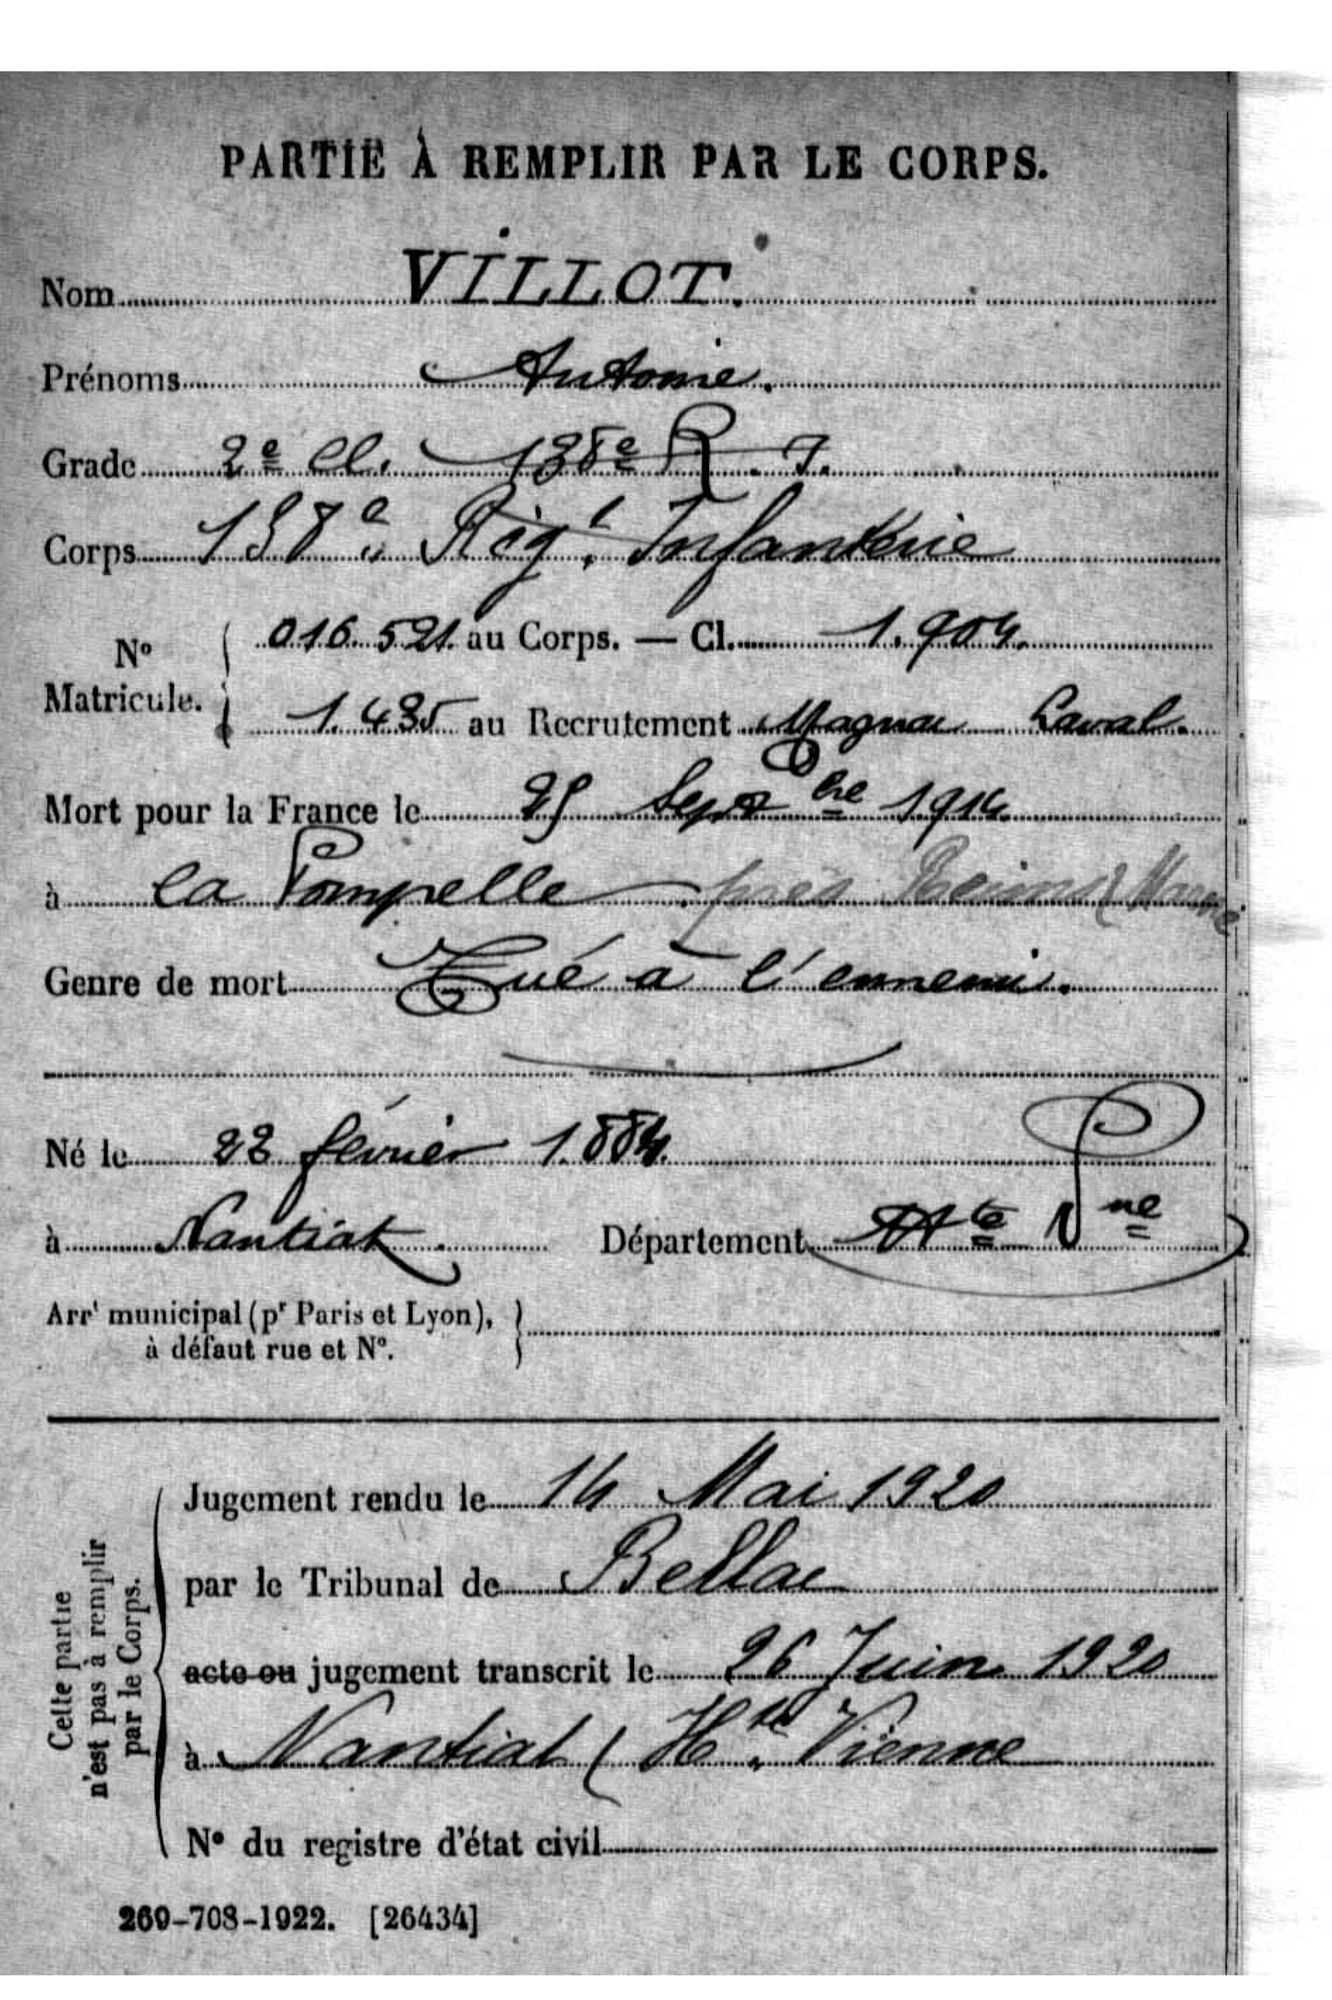 PARTIE À REMPLIR PAR LE CORPS.
Nom VILLOT.
Prénoms Antoine.
Grade 2e Cl. 138e R. I.
Corps 138e Régt Infanterie
No Matricule. 016.521 au Corps. — Cl. 1.904.
1.435 au Recrutement Magnac Laval.
Mort pour la France le 25 Septbre 1914
à la Pompelle près Reims (Marne
Genre de mort Tué à l'ennemi.
Né le 22 février 1.884.
à Nantiat Département Hte Vne
Arrt municipal (pr Paris et Lyon),
à défaut rue et No.
Cette partie
n'est pas à remplir
par le Corps.
Jugement rendu le 14 Mai 1920
par le Tribunal de Bellac
acte ou jugement transcrit le 26 Juin 1920
à Nantiat (Hte Vienne
No du registre d'état civil
269-708-1922. [26434]